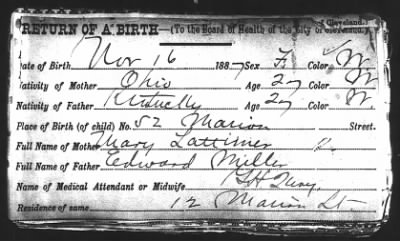 of Cleveland.)
RETURN OF A BIRTH—(To the Board of Health of the City of Cleveland.)
Date of Birth Nov 16 1887 Sex F Color W
Nativity of Mother Ohio Age 27 Color W
Nativity of Father Kentucky Age 27 Color W.
Place of Birth (of child) No. 52 Marion Street.
Full Name of Mother Mary Lattimer
Full Name of Father Edward Miller
Name of Medical Attendant or Midwife
Residence of same 12 Marion St.